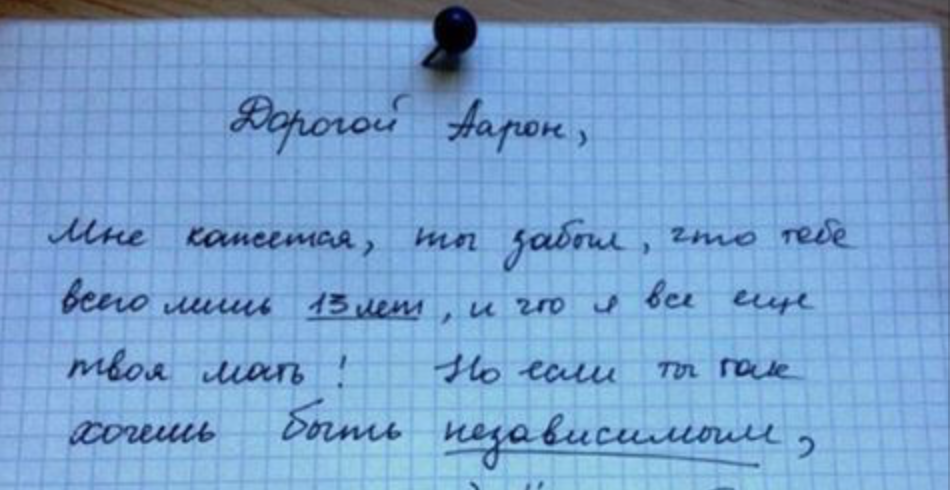 Дорогой Аарон,
Мне кажется, ты забыл, что тебе
всего лишь 13 лет, и что я все еще
твоя мать! Но если ты так
хочешь быть независимым,